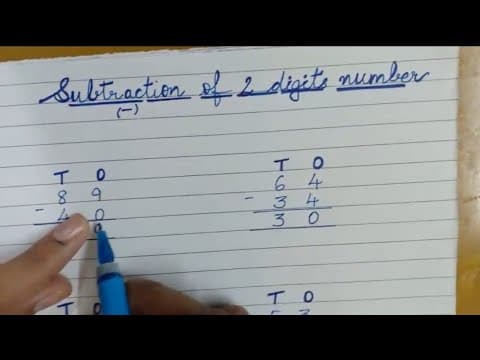 Subtraction of 2 digits number
(-)
T O
8 9
- 4 0
T O
6 4
- 3 4
3 0
T O
T O